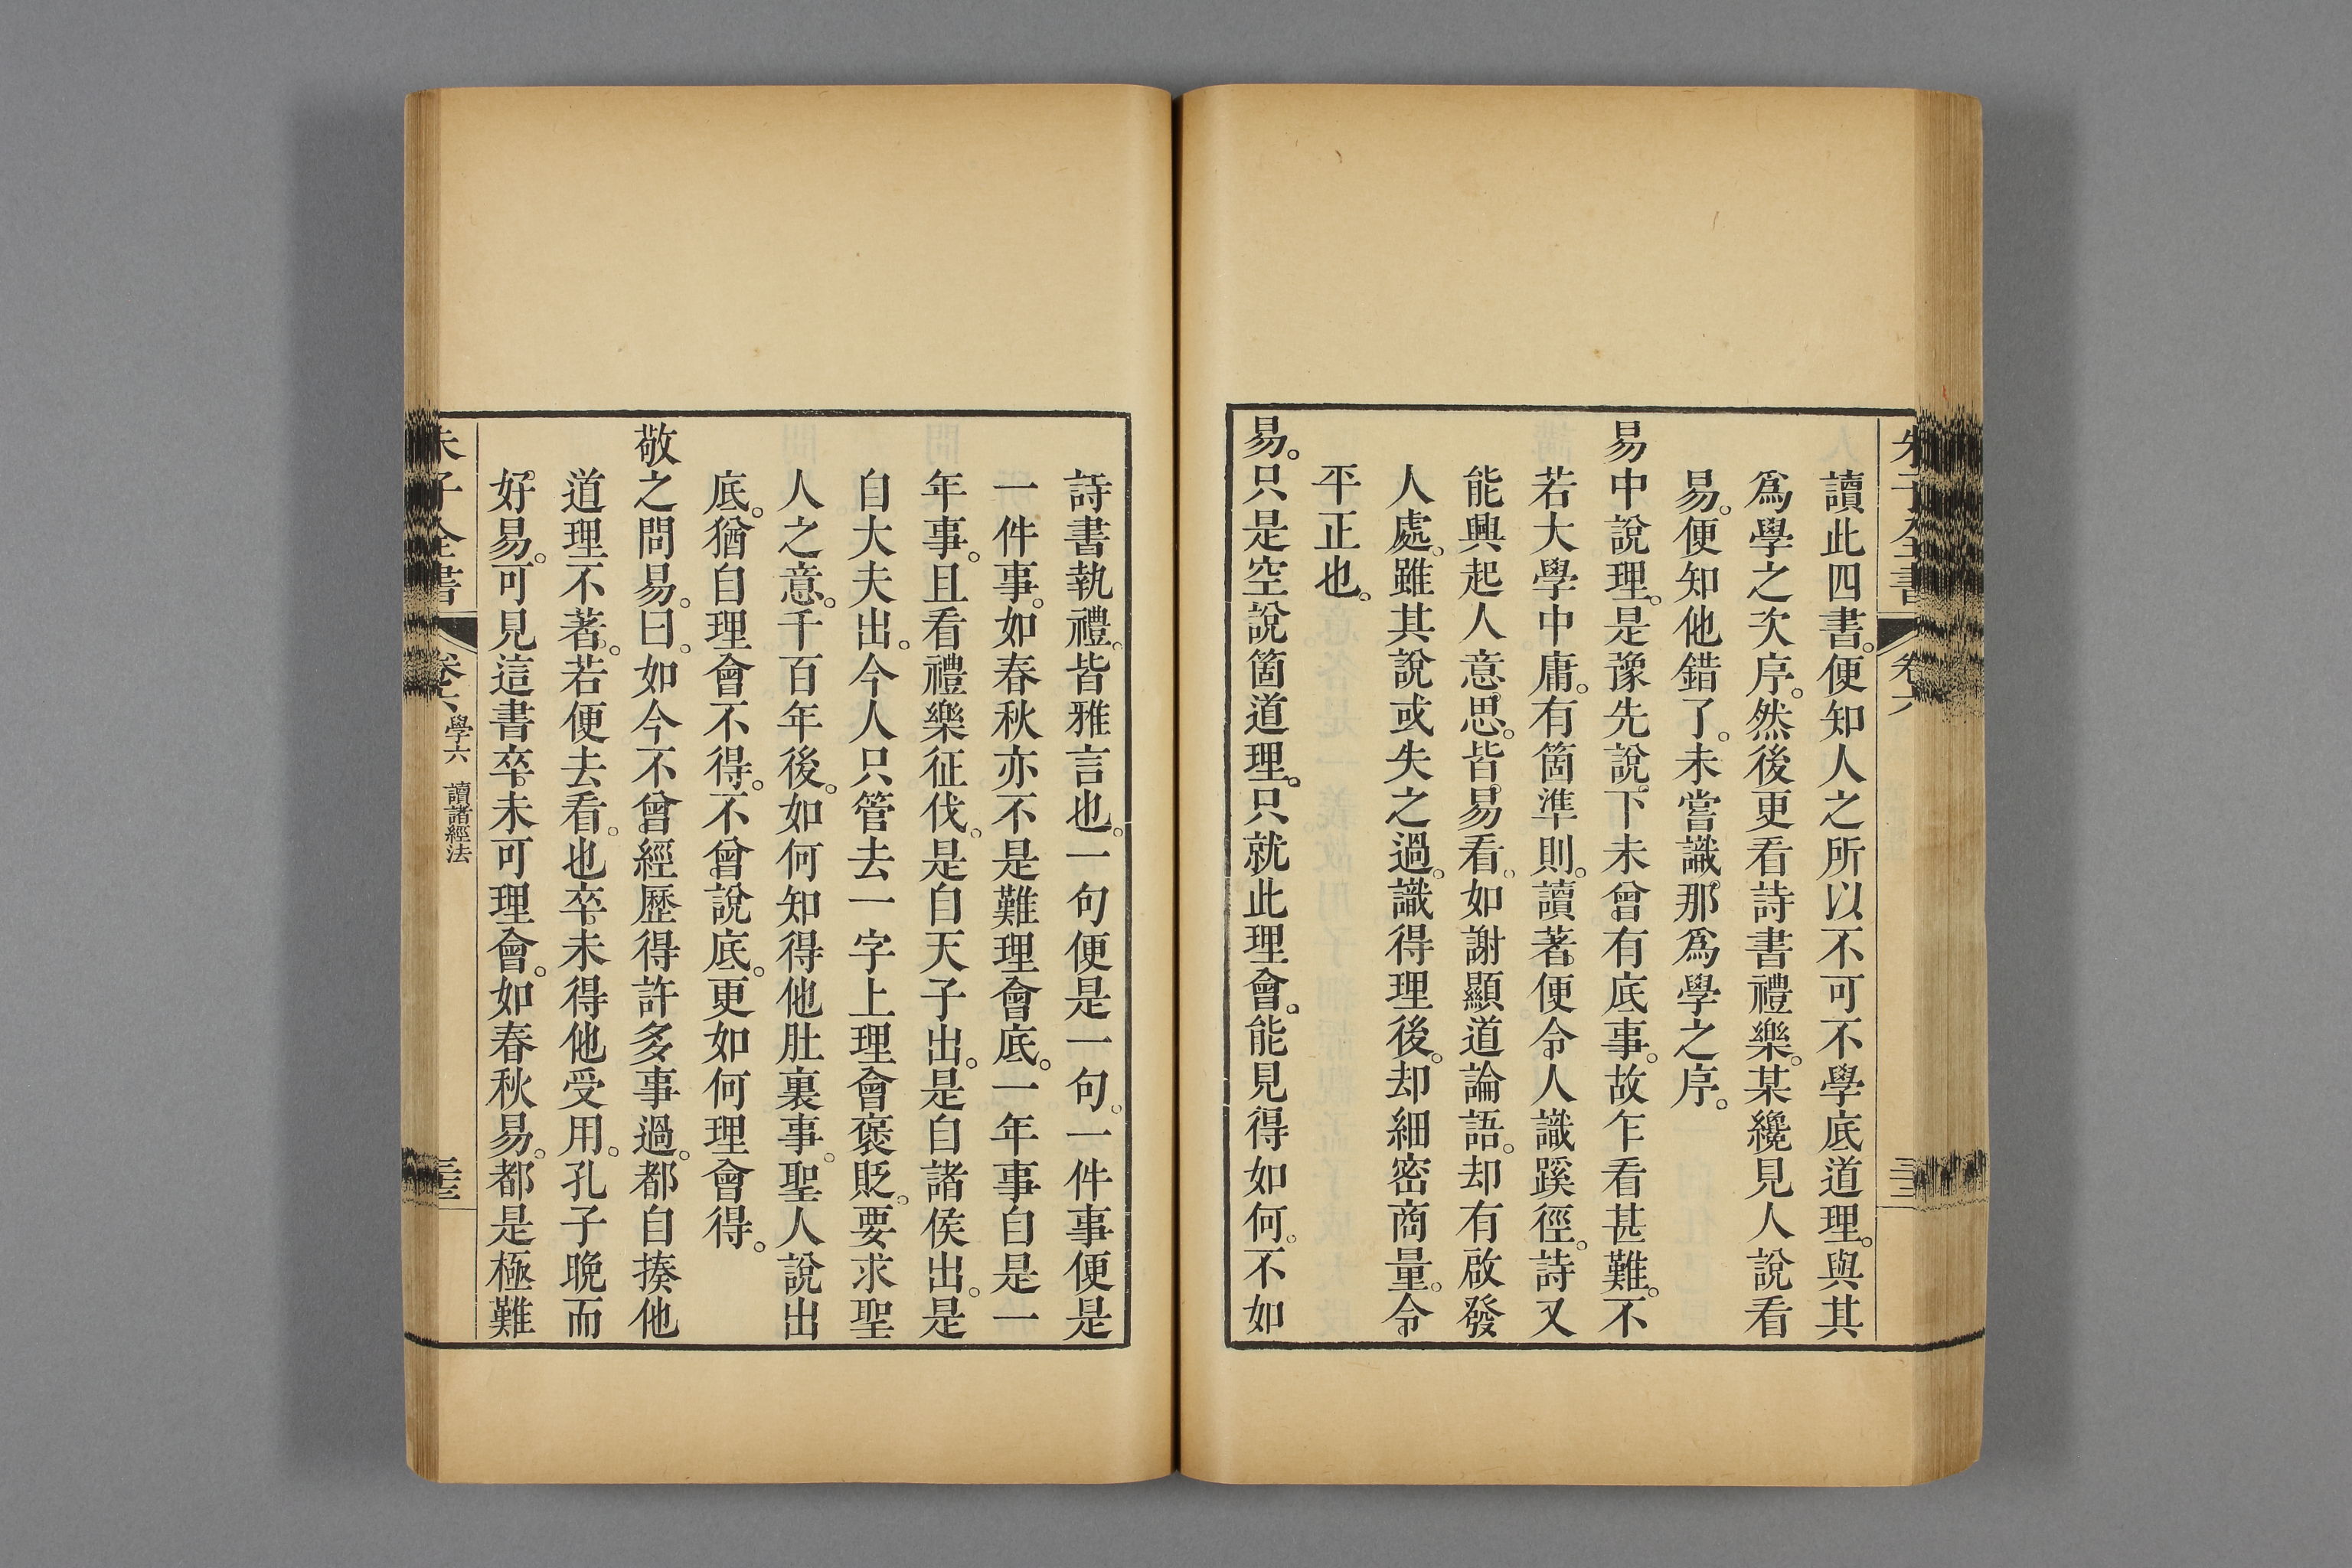 朱子全書 卷六
讀此四書。便知人之所以不可不學底道理。與其
爲學之次序。然後更看詩書禮樂。某纔見人說看
易。便知他錯了。未嘗識那爲學之序。
易中說理。是豫先說。下未曾有底事。故乍看甚難。不
若大學中庸。有箇準則。讀著便令人識蹊徑。詩又
能興起人意思。皆易看。如謝顯道論語。却有啟發
人處。雖其說或失之過。識得理後。却細密商量。令
平正也。
易。只是空說箇道理。只就此理會。能見得如何。不如
詩書執禮。皆雅言也。一句便是一句。一件事便是
一件事。如春秋亦不是難理會底。一年事自是一
年事。且看禮樂征伐。是自天子出。是自諸侯出。是
自大夫出。今人只管去一字上理會褒貶。要求聖
人之意。千百年後。如何知得他肚裏事。聖人說出
底。猶自理會不得。不曾說底。更如何理會得。
敬之問易。曰。如今不曾經歷得許多事過。都自揍他
道理不著。若便去看。也卒未得他受用。孔子晚而
好易。可見這書卒未可理會。如春秋易。都是極難
朱子全書 卷六 學六 讀諸經法